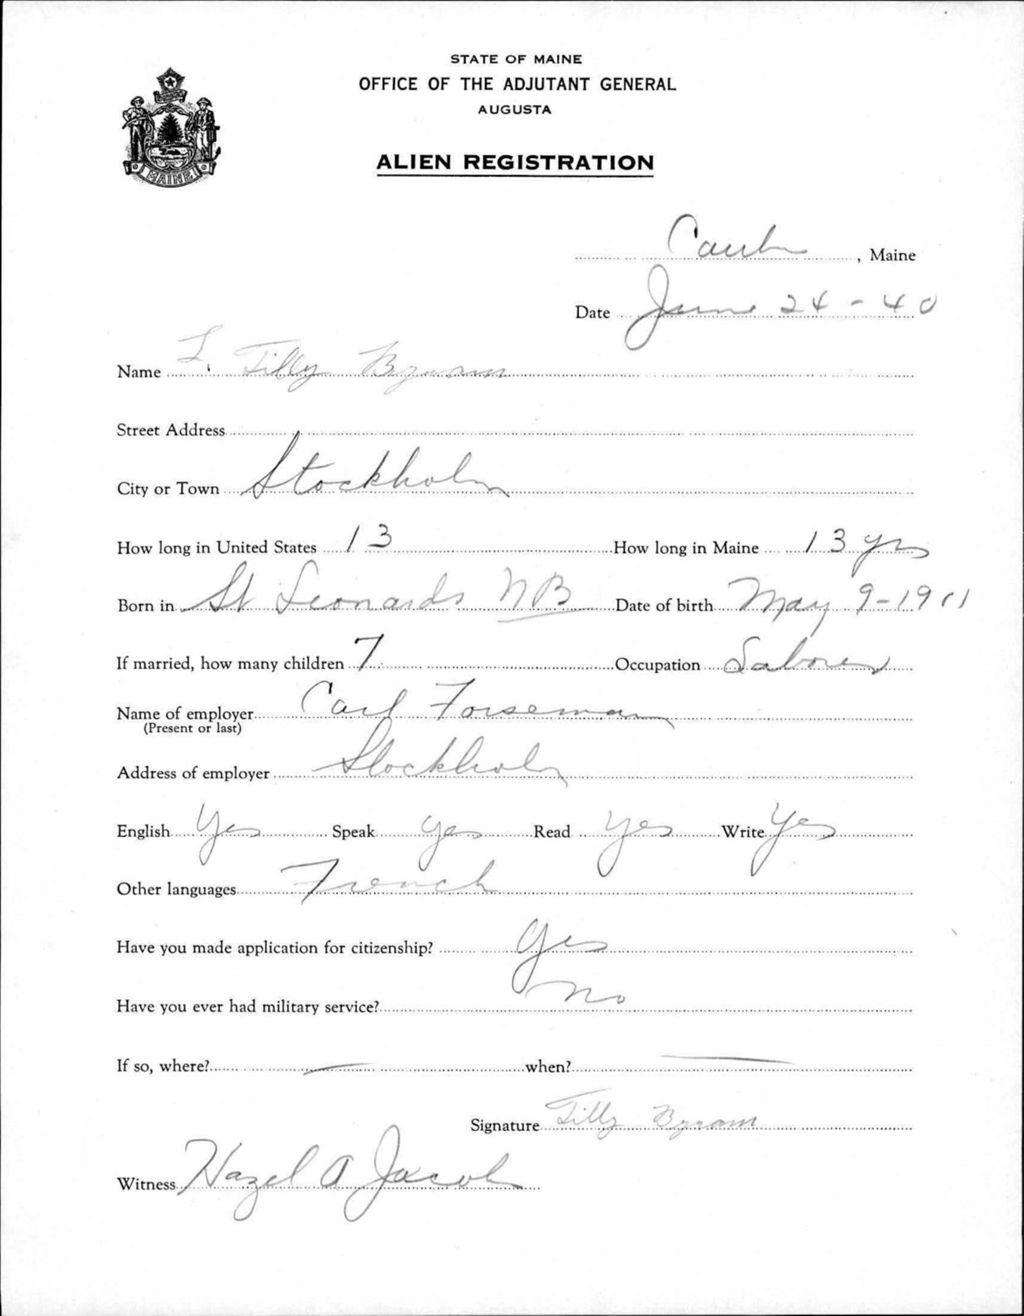 STATE OF MAINE
OFFICE OF THE ADJUTANT GENERAL
AUGUSTA
ALIEN REGISTRATION
MAINE
, Maine
Date June 24-40
Name L. Tilly Byram
Street Address
City or Town Stockholm
How long in United States 13 How long in Maine 13 yrs
Born in St Leonards NB Date of birth May 9-1911
If married, how many children 7 Occupation Laborer
Name of employer Carl Forseman
(Present or last)
Address of employer Stockholm
English Yes Speak yes Read yes Write Yes
Other languages French
Have you made application for citizenship? Yes
Have you ever had military service? No
If so, where? — when? —
Signature Tilly Byram
Witness Hazel A